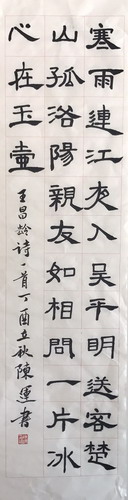 寒雨連江夜入吴平明送客楚
山孤洛陽親友如相問一片冰
心在玉壺
王昌齡詩一首丁酉立秋陳運書